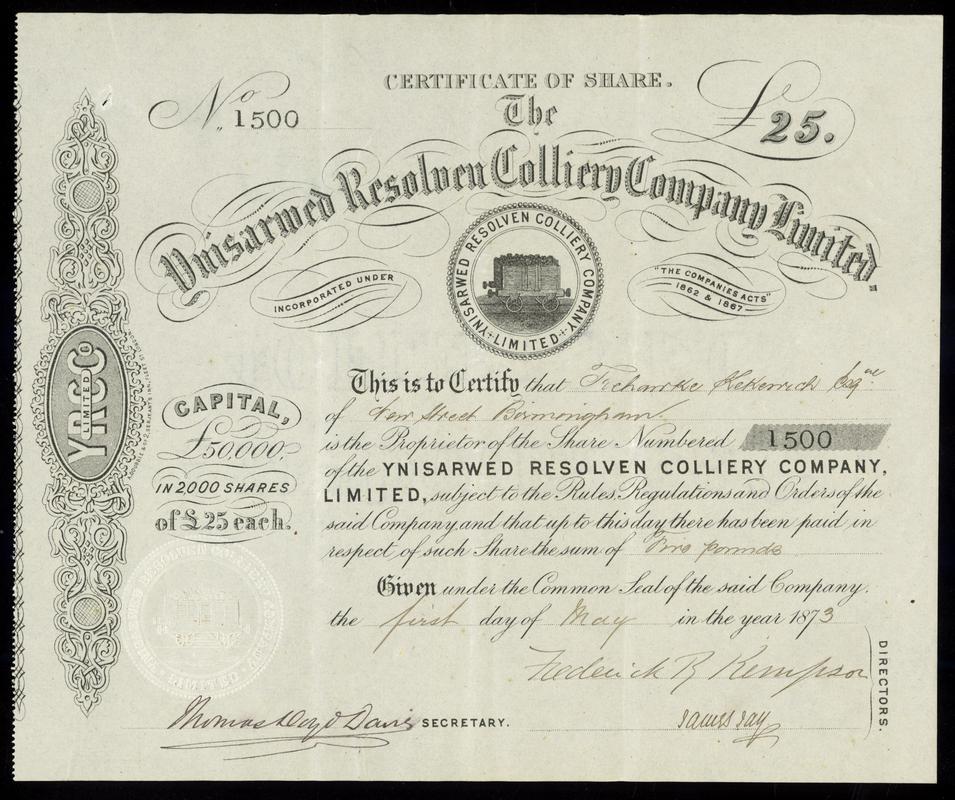 CERTIFICATE OF SHARE.
No 1500
£25.
The
Ynisarwed Resolven Colliery Company Limited
INCORPORATED UNDER
"THE COMPANIES ACTS"
1862 & 1867
YNISARWED RESOLVEN COLLIERY COMPANY
LIMITED
YRCCo
LIMITED
CAPITAL,
£50,000,
IN 2,000 SHARES
of £25 each.
This is to Certify that Trehawke Kekewich Esqre
of New Street Birmingham
is the Proprietor of the Share Numbered 1500
of the YNISARWED RESOLVEN COLLIERY COMPANY,
LIMITED, subject to the Rules, Regulations and Orders of the
said Company, and that up to this day there has been paid in
respect of such Share the sum of Five pounds
Given under the Common Seal of the said Company.
the first day of May in the year 1873
Frederick R Kempson
James Jay
DIRECTORS.
Thomas Lloyd Davis SECRETARY.
LIMITED